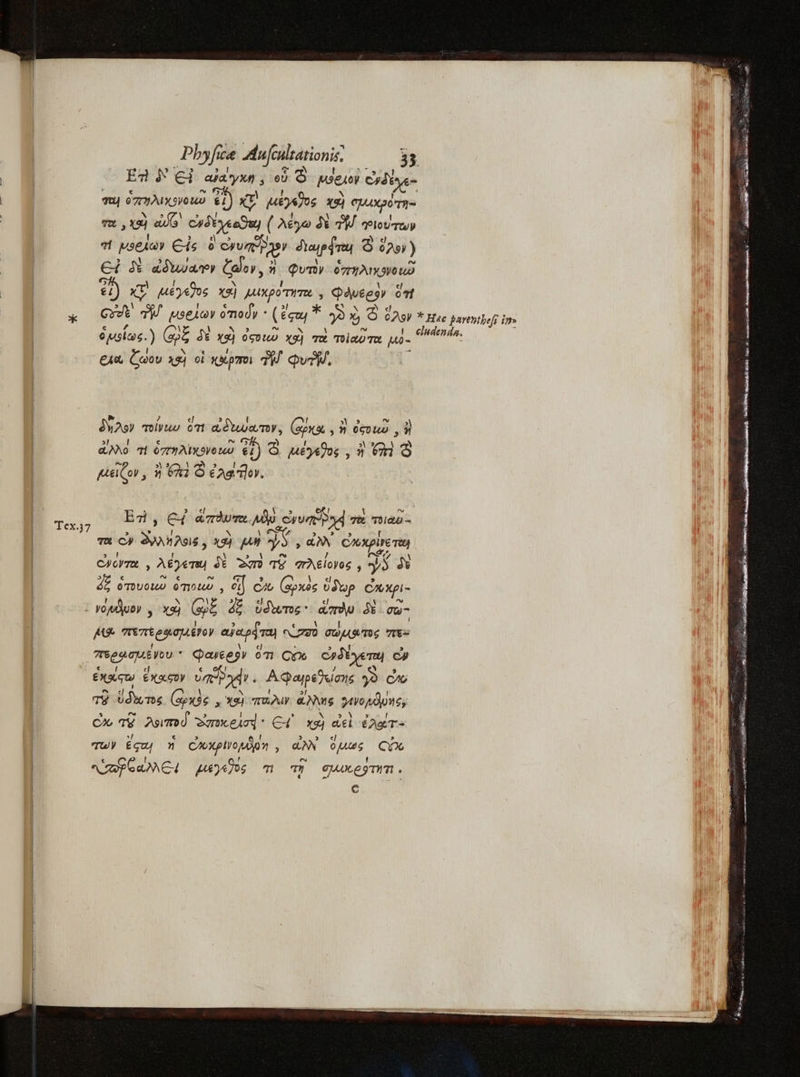 Physicæ Auscultationis. 33
Ἔτι δ' εἰ ἀνάγκη, οὗ τὸ μόριον ἐνδέχε-
ται ὁπηλικονοῦν εἶναι κατὰ μέγεθος καὶ σμικρότη-
τα, καὶ αὐτὸ ἐνδέχεσθαι (λέγω δὲ τῶν τοιούτων
τὶ μορίων εἰς ὃ ἐνυπάρχον διαιρεῖται τὸ ὅλον)
εἰ δὲ ἀδύνατον ζῶον, ἢ φυτὸν ὁπηλικονοῦν
εἶναι κατὰ μέγεθος καὶ μικρότητα, φανερὸν ὅτι
* οὐδὲ τῶν μορίων ὁποῦν· (ἔσται * γὰρ καὶ τὸ ὅλον * Hæc parenthesi in-
ὁμοίως.) σὰρξ δὲ καὶ ὀστοῦν καὶ τὰ τοιαῦτα μό- cludenda.
ρια ζώου καὶ οἱ καρποὶ τῶν φυτῶν.
δῆλον τοίνυν ὅτι ἀδύνατον, σάρκα, ἢ ὀστοῦν, ἢ
ἄλλό τι ὁπηλικονοῦν εἶναι τὸ μέγεθος, ἢ ἐπὶ τὸ
μεῖζον, ἢ ἐπὶ τὸ ἔλαττον.
Tex.37 Ἔτι, εἰ ἅπαντα μὲν ἐνυπάρχει τὰ τοιαῦ-
τα ἐν ἀλλήλοις, καὶ μὴ γίνεται, ἀλλ' ἐκκρίνεται
ἐνόντα, λέγεται δὲ ἀπὸ τοῦ πλείονος, γίνεται δὲ
ἐξ ὁτουοῦν ὁτιοῦν, οἷον ἐκ σαρκὸς ὕδωρ ἐκκρι-
νόμενον, καὶ σὰρξ ἐξ ὕδατος· ἅπαν δὲ σῶ-
μα πεπερασμένον ἀναιρεῖται ὑπὸ σώματος πε-
περασμένου· φανερὸν ὅτι οὐκ ἐνδέχεται ἐν
ἑκάστῳ ἕκαστον ὑπάρχειν. Ἀφαιρεθείσης γὰρ ἐκ
τοῦ ὕδατος σαρκὸς, καὶ πάλιν ἄλλης γενομένης,
ἐκ τοῦ λοιποῦ ἀποκρίσει· εἰ καὶ ἀεὶ ἐλάτ-
των ἔσται ἡ ἐκκρινομένη, ἀλλ' ὅμως οὐκ
ὑπερβάλλει μέγεθός τι τῇ σμικρότητι.
C